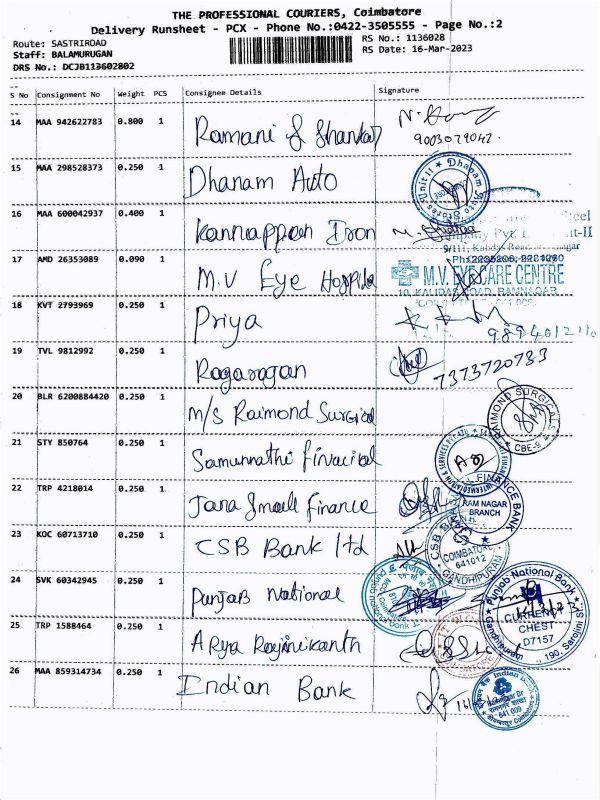 THE PROFESSIONAL COURIERS, Coimbatore
Delivery Runsheet - PCX - Phone No.:0422-3505555 - Page No.:2
Route: SASTRIROAD
RS No.: 1136028
Staff: BALAMURUGAN
RS Date: 16-Mar-2023
DRS No.: DCJB113602802
S No Consignment No Weight PCS Consignee Details Signature
14 MAA 942622783 0.800 1 Ramani & Shankar
9003079042.
15 MAA 298528373 0.250 1 Dhanam Auto
Unit II ★ Dhanam Auto Stores
16 MAA 600042937 0.400 1 Kannappan Iron
Steel
Company Pvt. Unit-II
9/111, Kalidas Road
17 AMD 26353089 0.090 1 M.V Eye Hospital
M.V. EYE CARE CENTRE
10, KALIDAS ROAD, RAMNAGAR
18 KVT 2793969 0.250 1 Priya
19 TVL 9812992 0.250 1 Ragaragan
7373720783
20 BLR 6200884420 0.250 1 M/s Raimond Surgical
RAIMOND SURGICAL
CBE-9
21 STY 850764 0.250 1 Samunnathi Finacial
22 TRP 4218014 0.250 1 Jana Small Finance
FINANCE BANK
RAM NAGAR
BRANCH
23 KOC 60713710 0.250 1 CSB Bank ltd
CSB BANK
COIMBATORE
641012
GANDHIPURAM
24 SVK 60342945 0.250 1 Punjab National
Punjab National Bank
CURRENCY
CHEST
D7157
Gandhipuram
190, Sarojini St
25 TRP 1588464 0.250 1 Arya Rajinikanth
26 MAA 859314734 0.250 1 Indian Bank
Indian Bank
641 009
Coimbatore